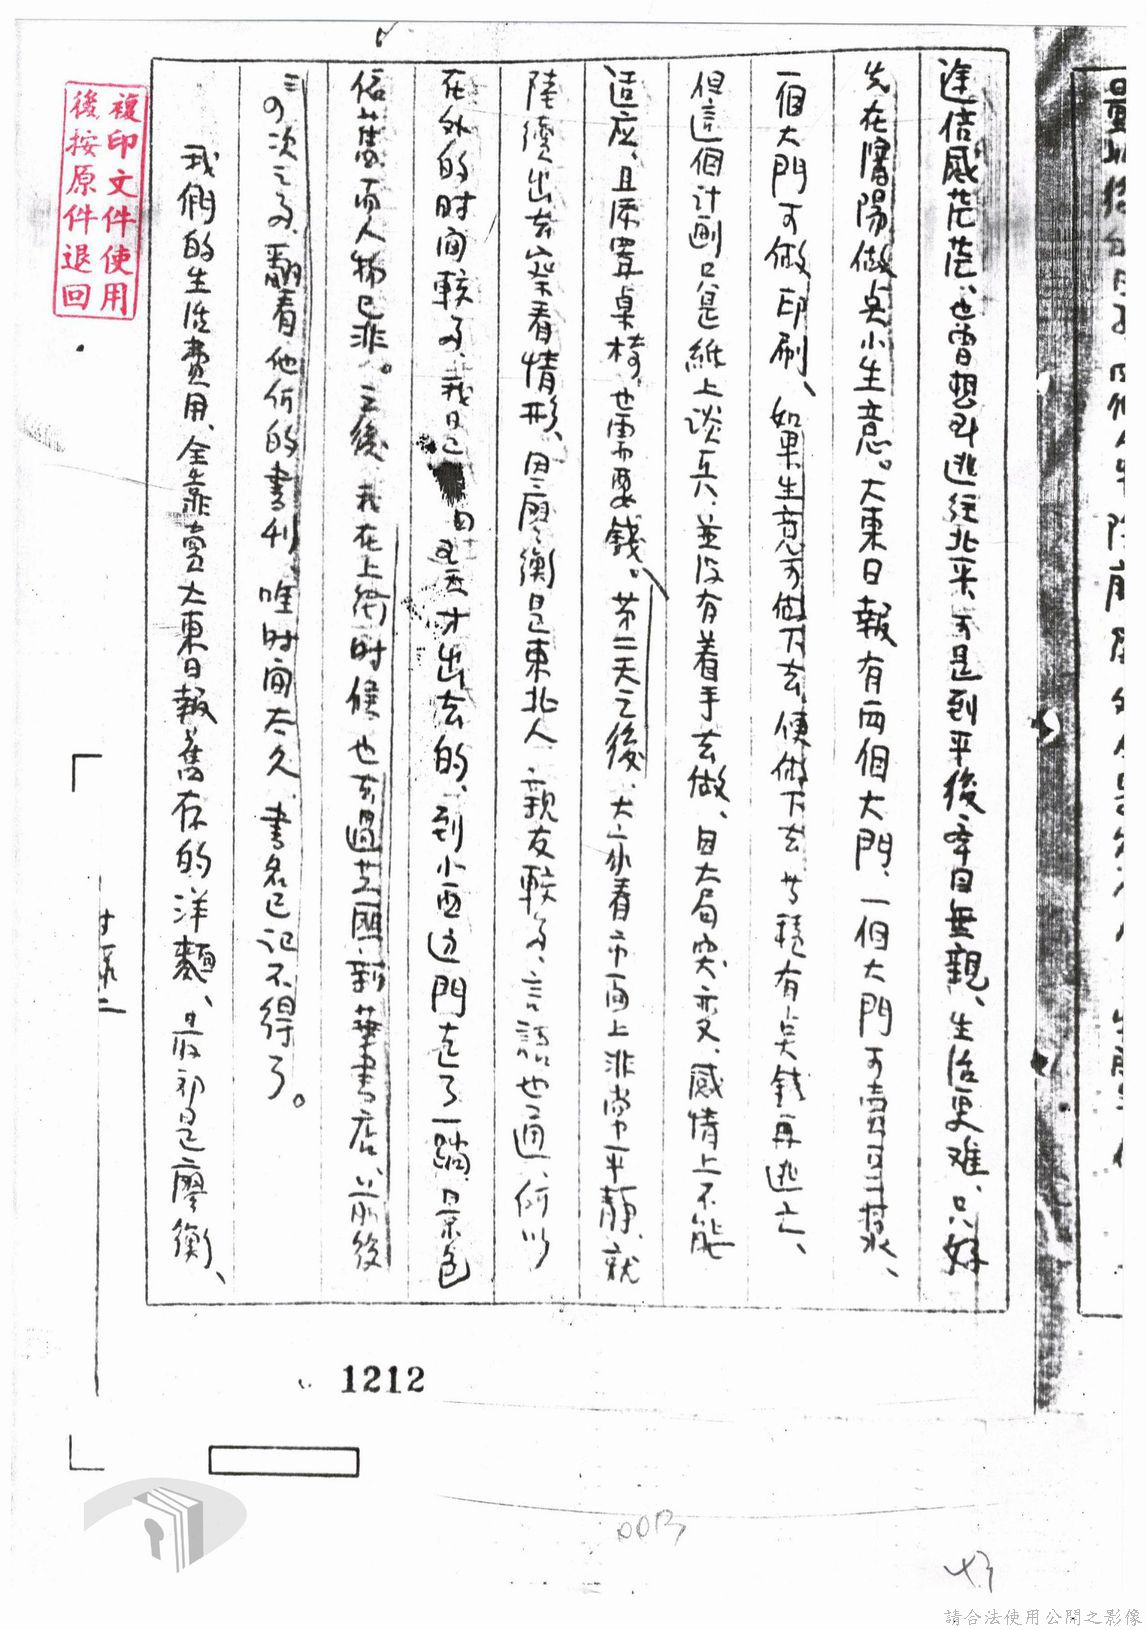 途倍感茫茫、也曾想到逃往北平、可是到平後舉目無親、生活更难、只好
先在瀋陽做点小生意。大東日報有兩個大門、一個大門可賣豆漿、
一個大門可做印刷、如果生意可做下去便做下去、若積有点錢再逃亡、
但這個計劃只是紙上談兵、並没有着手去做、因大局突变、感情上不能
适应、且添置桌椅、也需要錢。第二天之後、大家看市面上非常平静、就
陸續出去察看情形、因廖衡是東北人、親友較多、言語也通、所以
在外的时间較多、我自己才出去的、到小西边門走了一趟、景色
依舊、而人物已非。之後、我在上街时候、也去過芝興新華書店、前後
三四次之多、翻看他们的書刊、唯时间太久、書名已記不得了。
我們的生活費用、全靠賣大東日報舊存的洋麵、最初是廖衡、
複印文件使用
後按原件退回
付錄二
1212
0013
43
請合法使用公開之影像